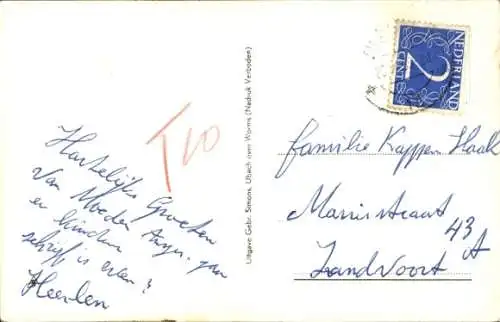 Hartelijke Groeten
Van Moeder
en kinderen
schrijf is even?
Heerlen
T10
Uitgave Gebr. Simons, Ubach over Worms (Nadruk Verboden)
NEDERLAND
2
CENT
familie Kappen Haak
Marisstraat 43
A
Zandvoort